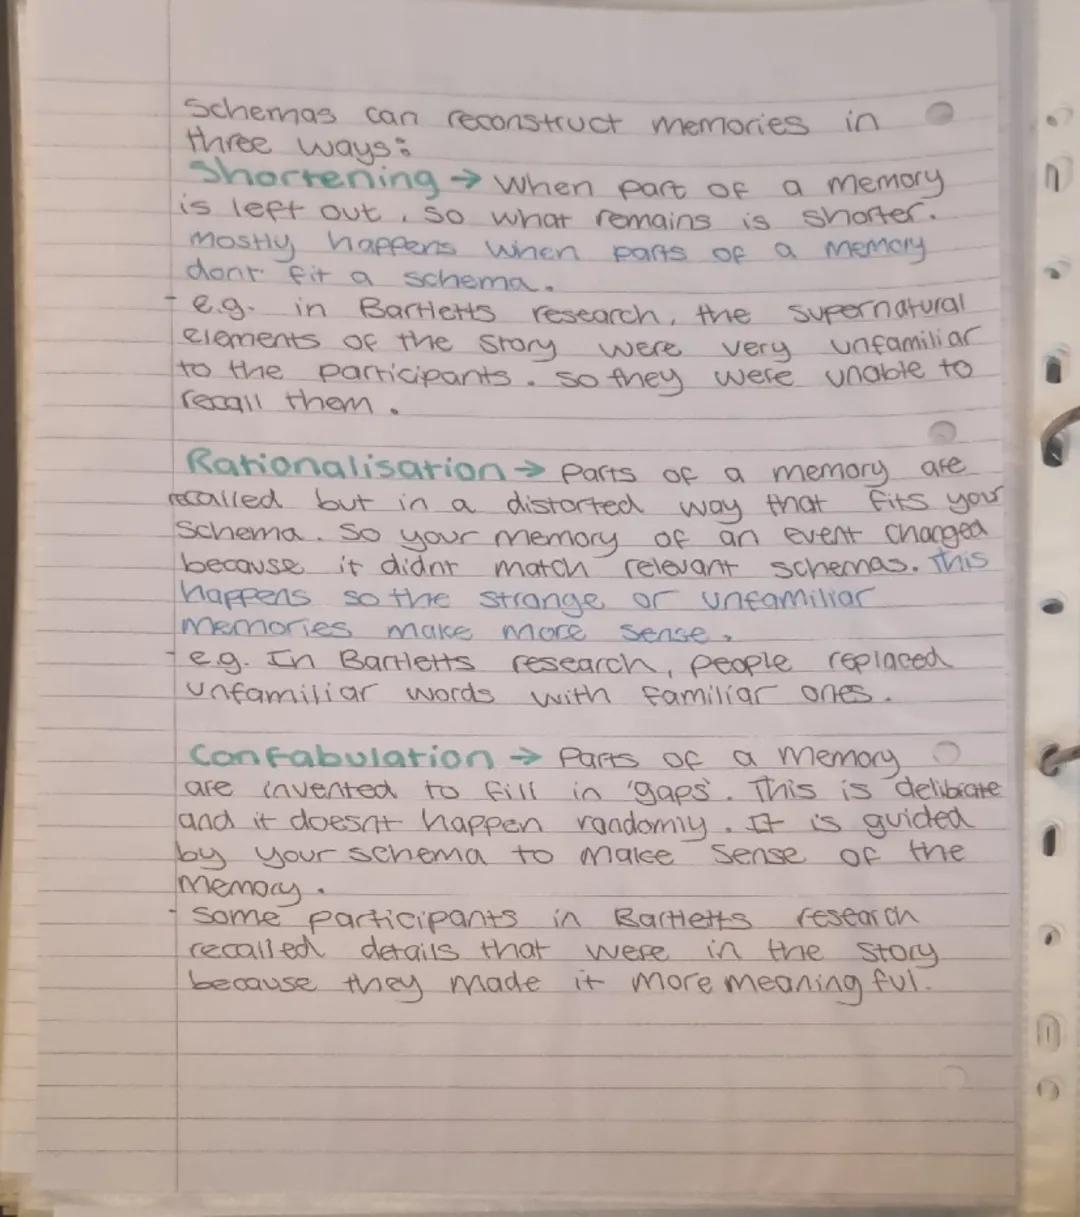 Schemas can reconstruct memories in
three ways:
Shortening → When part of a memory
is left out, so what remains is shorter.
mostly happens when parts of a memory
dont fit a schema.
- e.g. in Bartletts research, the supernatural
elements of the story were very unfamiliar
to the participants. so they were unable to
recall them.
Rationalisation → Parts of a memory are
recalled but in a distorted way that fits your
schema. So your memory of an event changed
because it didnt match relevant schemas. This
happens so the strange or unfamiliar
memories make more sense.
- e.g. In Bartletts research, people replaced
unfamiliar words with familiar ones.
Confabulation → Parts of a memory
are invented to fill in 'gaps'. This is delibrate
and it doesnt happen randomly. It is guided
by your schema to make sense of the
memory.
- Some participants in Bartletts research
recalled details that were in the story
because they made it more meaningful.